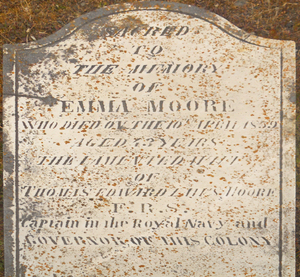 SACRED
TO
THE MEMORY
OF
EMMA MOORE
WHO DIED ON THE 10TH APRIL
AGED YEARS
THE LAMENTED
OF
THOMAS EDWARD LAWS MOORE
F.R.S.
Captain in the Royal Navy and
GOVERNOR OF THIS COLONY